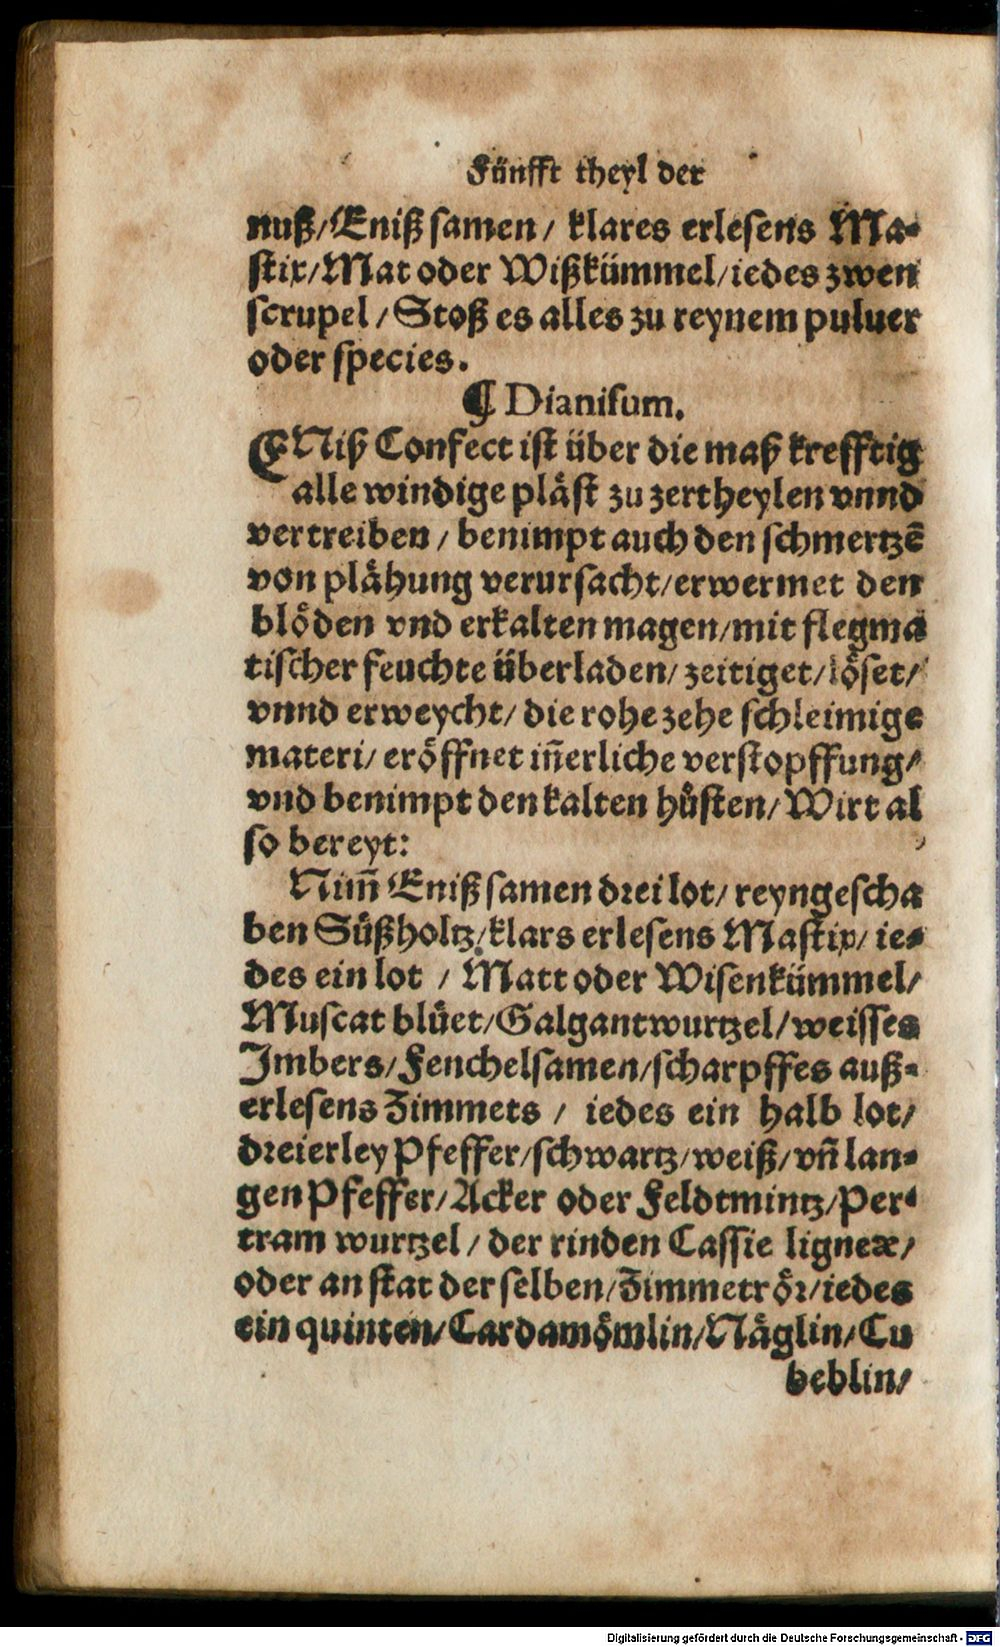 Fünfft theyl der
nuß/Eniß samen/ klares erlesens Ma-
stix/Mat oder Wißkümmel/iedes zwen
scrupel/Stoß es alles zu reynem puluer
oder species.
¶ Dianisum.
ENiß Confect ist über die maß krefftig
alle windige pläst zu zertheylen vnnd
vertreiben/ benimpt auch den schmertzē
von plähung verursacht/erwermet den
blöden vnd erkalten magen/mit flegma
tischer feuchte überladen/ zeitiget/löset/
vnnd erweycht/ die rohe zehe schleimige
materi/ eröffnet iñerliche verstopffung/
vnd benimpt den kalten hůsten/Wirt al
so bereyt:
Nim̃ Eniß samen drei lot/ reyngescha
ben Süßholtz/klars erlesens Mastix/ ie-
des ein lot / Matt oder Wisenkümmel/
Muscat blüet/Galgantwurtzel/weisses
Jmbers/Fenchelsamen/scharpffes auß-
erlesens Zimmets / iedes ein halb lot/
dreierley Pfeffer/schwartz/weiß/vñ lan-
gen Pfeffer/Acker oder Feldtmintz/Per-
tram wurtzel/ der rinden Cassie ligneæ/
oder an stat der selben/Zimmetrör/iedes
ein quinten/Cardamömlin/Näglin/Cu
beblin/
Digitalisierung gefördert durch die Deutsche Forschungsgemeinschaft - DFG